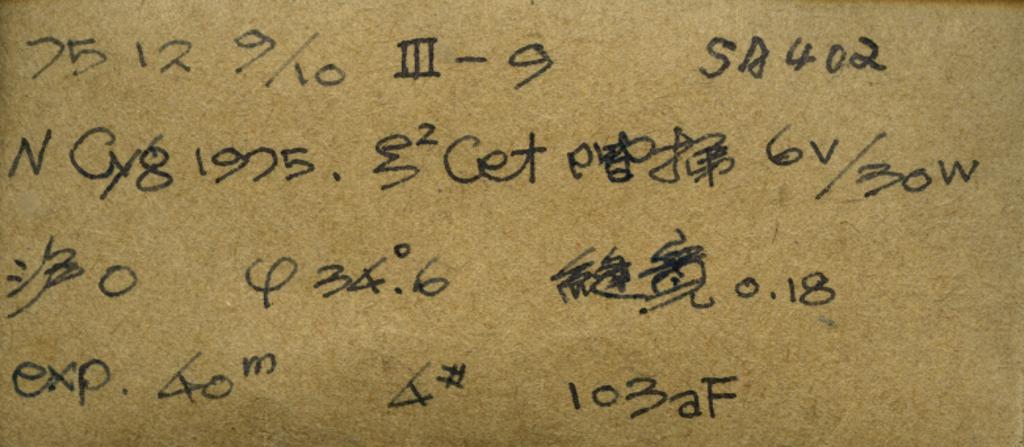 75 12 9/10 III-9 SA402
N Cyg 1975. ξ² Cet 阶梯 6V/30W
滤0 φ34°.6 缝宽0.18
exp. 40ᵐ 4# 103aF